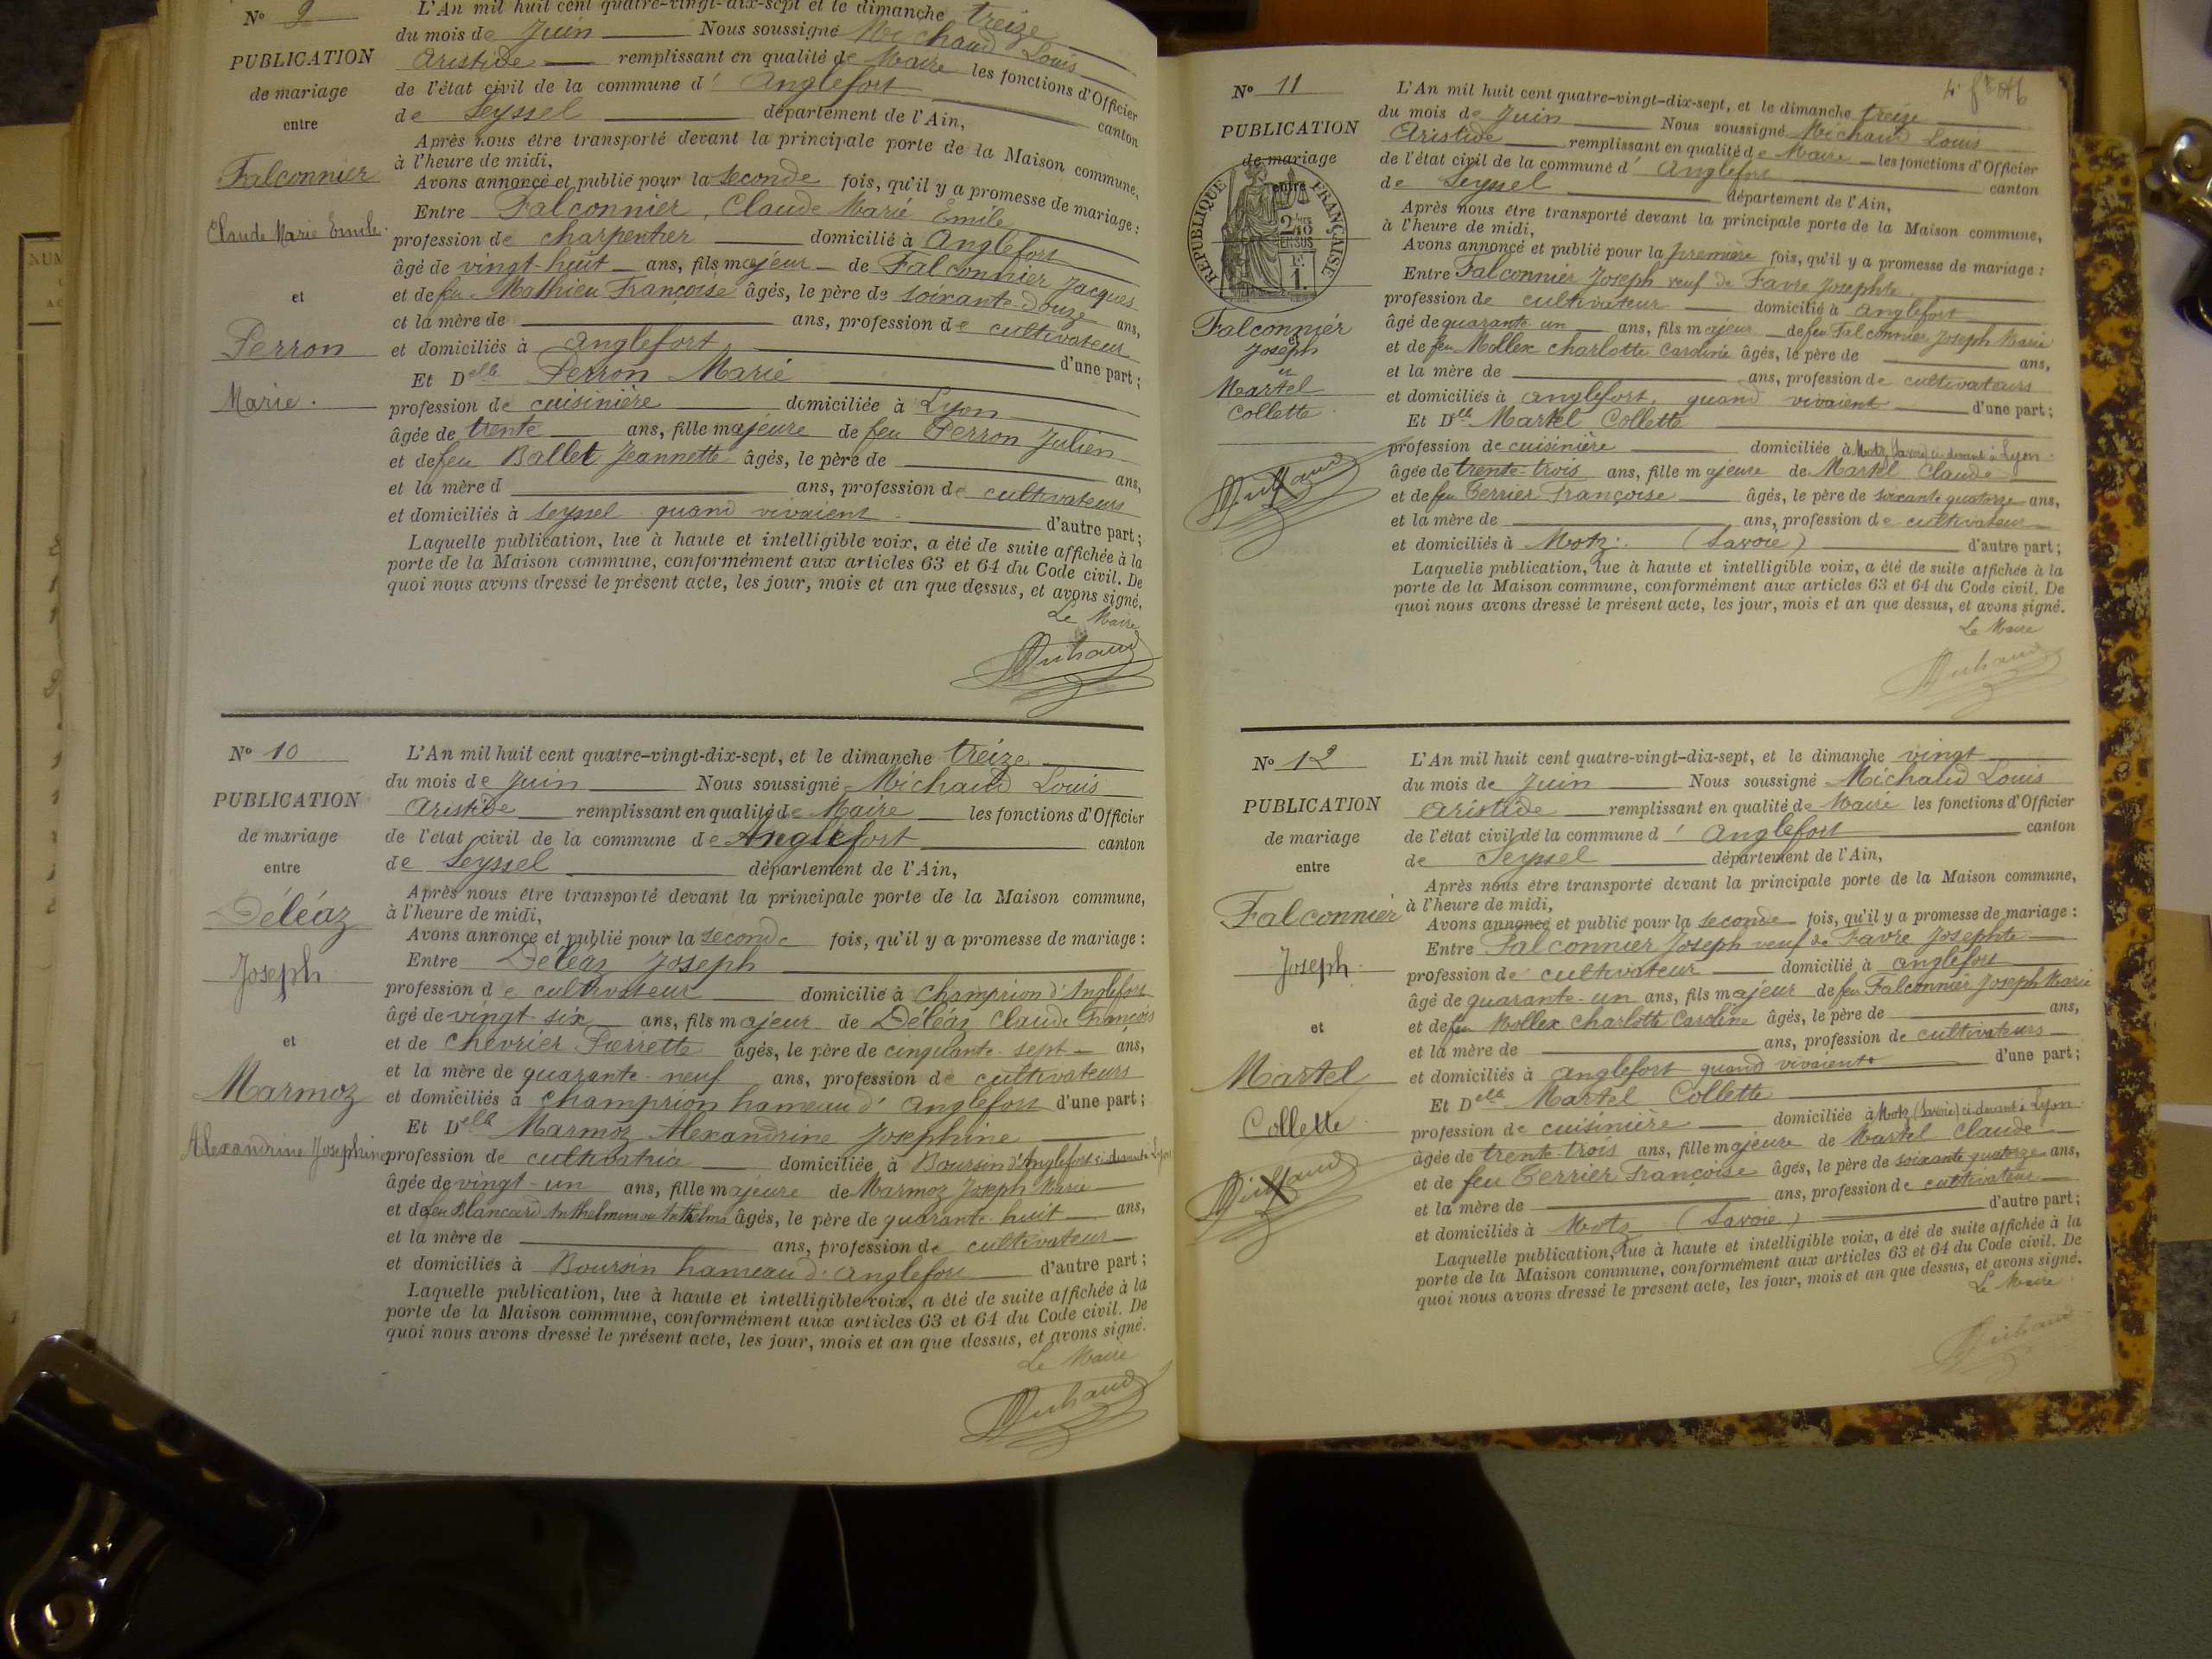 N° 9
PUBLICATION
de mariage
entre
Falconnier
Claude Marie Emile.
et
Perron
Marie.
L'An mil huit cent quatre-vingt-dix-sept et le dimanche treize
du mois de Juin Nous soussigné Michaud Louis
Aristide remplissant en qualité de Maire les fonctions d'Officier
de l'état civil de la commune d' Anglefort canton
de Seyssel département de l'Ain,
Après nous être transporté devant la principale porte de la Maison commune,
à l'heure de midi,
Avons annoncé et publié pour la seconde fois, qu'il y a promesse de mariage :
Entre Falconnier, Claude Marie Emile
profession de charpentier domicilié à Anglefort
âgé de vingt-huit ans, fils majeur de Falconnier Jacques
et de feu Mathieu Françoise âgés, le père de soixante-douze ans,
et la mère de ans, profession de cultivateur
et domiciliés à Anglefort, d'une part ;
Et Delle Perron Marie
profession de cuisinière domiciliée à Lyon
âgée de trente ans, fille majeure de feu Perron Julien
et de feu Ballet Jeannette âgés, le père de ans,
et la mère d ans, profession de cultivateurs
et domiciliés à Seyssel quand vivaient d'autre part ;
Laquelle publication, lue à haute et intelligible voix, a été de suite affichée à la
porte de la Maison commune, conformément aux articles 63 et 64 du Code civil. De
quoi nous avons dressé le présent acte, les jour, mois et an que dessus, et avons signé.
Le Maire
Michaud
N° 10
PUBLICATION
de mariage
entre
Déléaz
Joseph
et
Marmoz
Alexandrine Josephine
L'An mil huit cent quatre-vingt-dix-sept, et le dimanche treize
du mois de Juin Nous soussigné Michaud Louis
Aristide remplissant en qualité de Maire les fonctions d'Officier
de l'état civil de la commune de Anglefort canton
de Seyssel département de l'Ain,
Après nous être transporté devant la principale porte de la Maison commune,
à l'heure de midi,
Avons annoncé et publié pour la seconde fois, qu'il y a promesse de mariage :
Entre Déléaz Joseph
profession de cultivateur domicilié à Champrion d'Anglefort
âgé de vingt-six ans, fils majeur de Déléaz Claude François
et de Chevrier Pierrette âgés, le père de cinquante-sept ans,
et la mère de quarante-neuf ans, profession de cultivateurs
et domiciliés à Champrion hameau d'Anglefort d'une part ;
Et Delle Marmoz Alexandrine Josephine
profession de cultivatrice domiciliée à Boursin d'Anglefort ci-devant à Lyon
âgée de vingt-un ans, fille majeure de Marmoz Joseph Marie
et de feu Blancard Anthelmine ou Anthelma âgés, le père de quarante-huit ans,
et la mère de ans, profession de cultivateur
et domiciliés à Boursin hameau d'Anglefort d'autre part ;
Laquelle publication, lue à haute et intelligible voix, a été de suite affichée à la
porte de la Maison commune, conformément aux articles 63 et 64 du Code civil. De
quoi nous avons dressé le présent acte, les jour, mois et an que dessus, et avons signé.
Le Maire
Michaud
N° 11
PUBLICATION
de mariage
entre
REPUBLIQUE FRANÇAISE
Falconnier
Joseph
et
Martel
Collette
Michaud
L'An mil huit cent quatre-vingt-dix-sept, et le dimanche treize
du mois de Juin Nous soussigné Michaud Louis
Aristide remplissant en qualité de Maire les fonctions d'Officier
de l'état civil de la commune d' Anglefort canton
de Seyssel département de l'Ain,
Après nous être transporté devant la principale porte de la Maison commune,
à l'heure de midi,
Avons annoncé et publié pour la première fois, qu'il y a promesse de mariage :
Entre Falconnier Joseph veuf de Favre Josephte
profession de cultivateur domicilié à Anglefort
âgé de quarante-un ans, fils majeur de feu Falconnier Joseph Marie
et de feu Mollex Charlotte Caroline âgés, le père de ans,
et la mère de ans, profession de cultivateurs
et domiciliés à Anglefort, quand vivaient d'une part ;
Et Dlle Martel Collette
profession de cuisinière domiciliée à Motz (Savoie) ci-devant à Lyon
âgée de trente-trois ans, fille majeure de Martel Claude
et de feu Terrier Françoise âgés, le père de soixante quatorze ans,
et la mère de ans, profession de cultivateur
et domiciliés à Motz (Savoie) d'autre part ;
Laquelle publication, lue à haute et intelligible voix, a été de suite affichée à la
porte de la Maison commune, conformément aux articles 63 et 64 du Code civil. De
quoi nous avons dressé le présent acte, les jour, mois et an que dessus, et avons signé.
Le Maire
Michaud
N° 12
PUBLICATION
de mariage
entre
Falconnier
Joseph
et
Martel
Collette
Michaud
L'An mil huit cent quatre-vingt-dix-sept, et le dimanche vingt
du mois de Juin Nous soussigné Michaud Louis
Aristide remplissant en qualité de Maire les fonctions d'Officier
de l'état civil de la commune d' Anglefort canton
de Seyssel département de l'Ain,
Après nous être transporté devant la principale porte de la Maison commune,
à l'heure de midi,
Avons annoncé et publié pour la seconde fois, qu'il y a promesse de mariage :
Entre Falconnier Joseph veuf de Favre Josephte
profession de cultivateur domicilié à Anglefort
âgé de quarante-un ans, fils majeur de feu Falconnier Joseph Marie
et de feu Mollex Charlotte Caroline âgés, le père de ans,
et la mère de ans, profession de cultivateurs
et domiciliés à Anglefort quand vivaient d'une part ;
Et Delle Martel Collette
profession de cuisinière domiciliée à Motz (Savoie) ci-devant à Lyon
âgée de trente trois ans, fille majeure de Martel Claude
et de feu Terrier Françoise âgés, le père de soixante quatorze ans,
et la mère de ans, profession de cultivateur
et domiciliés à Motz (Savoie) d'autre part ;
Laquelle publication, lue à haute et intelligible voix, a été de suite affichée à la
porte de la Maison commune, conformément aux articles 63 et 64 du Code civil. De
quoi nous avons dressé le présent acte, les jour, mois et an que dessus, et avons signé.
Le Maire
Michaud